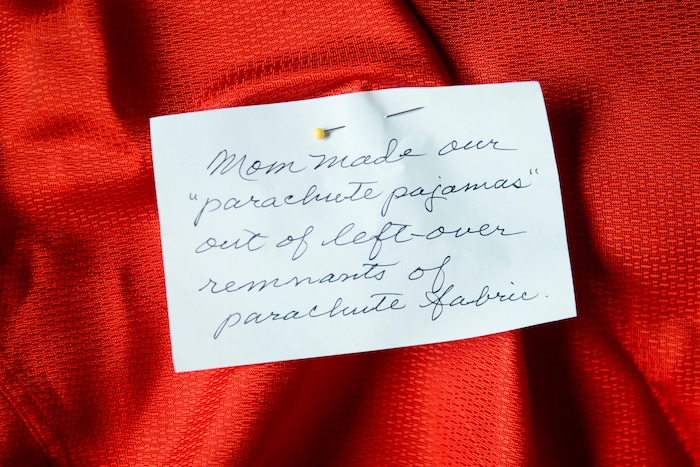 Mom made our
"parachute pajamas"
out of left-over
remnants of
parachute fabric.